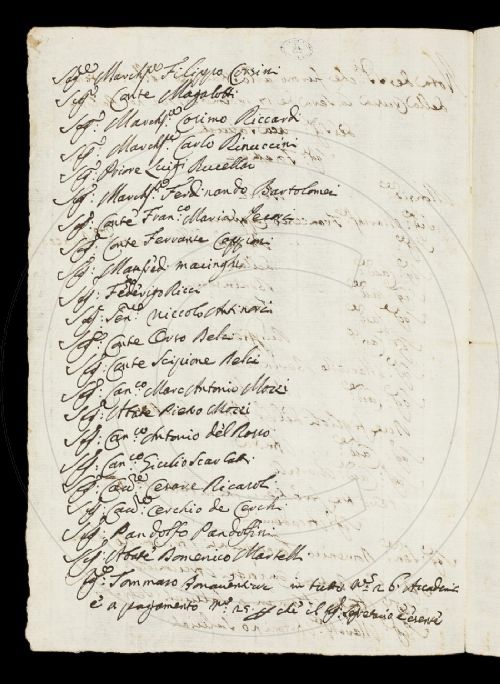 Sig.re March.se Filippo Corsini
Sig.r Conte Magalotti
Sig.r March.se Cosimo Riccardi
Sig.r March.se Carlo Rinuccini
Sig.r Priore Luigi Rucellai
Sig.r March.se Ferdinando Bartolomei
Sig.r Conte Fran.co Maria
Sig.r Conte Ferrante Capponi
Sig.r Manfred. macinghi
Sig.r Federigo Ricci
Sig.r Sen.re Niccolò Antinori
Sig.r Conte Orso Belei
Sig.r Conte Scipione Belei
Sig.r Can.co Marc Antonio Mozzi
Sig.r Abate Pietro Mozzi
Sig.r Can.co Antonio del Rosso
Sig.r Can.co Giulio Scarlatti
Sig.r Cav.re Cesare Ricasoli
Sig.r Cav.re Cerchio de Cerchi
Sig.r Pandolfo Pandolfini
Sig.r Abate Domenico Martelli
Sig.r Tommaso Bonaventuri in tutto N.o 26 Accademici
e a pagamento N.o 25 il Sig. Segretario è esente